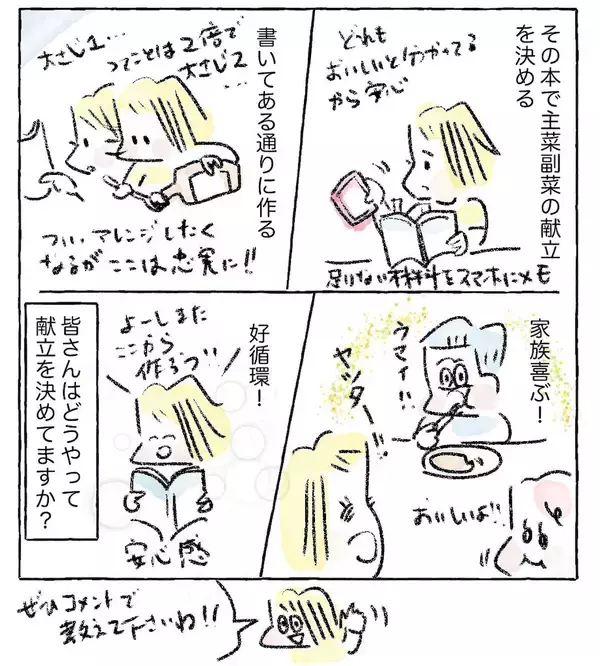 その本で主菜副菜の献立
を決める
どれも
おいしいと分かってる
から安心
足りない材料をスマホにメモ
書いてある通りに作る
大さじ1…
ってことは2倍で
大さじ2…
ついアレンジしたく
なるがここは忠実に!!
家族喜ぶ!
ウマイ!!
ヤッター!!
おいしいよ!!
好循環!
よーしまた
ここから
作るゾ!!
安心感
皆さんはどうやって
献立を決めてますか?
ぜひコメントで
教えて下さいね!!